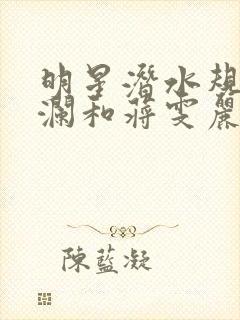 明星潛水規
瀾和蔣雯麗
陳藍凝